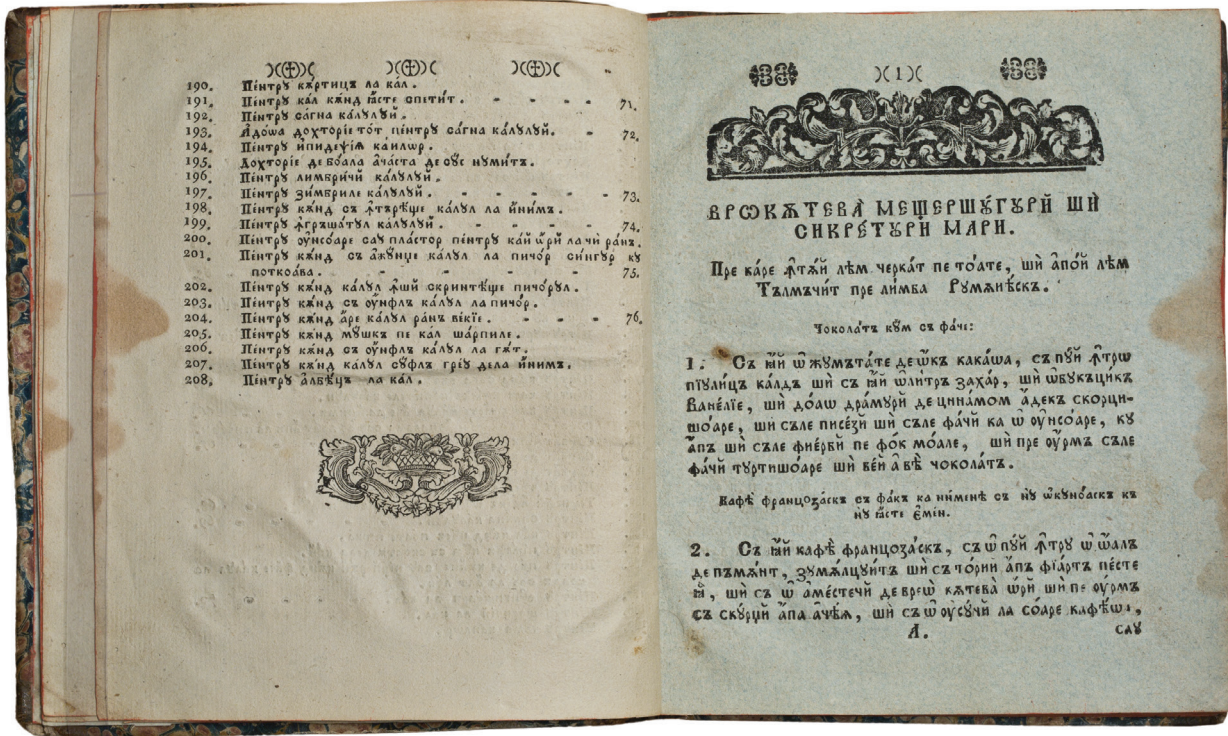 190. Пе́нтрꙋ кѫ́ртицъ ла ка́л.
191. Пе́нтрꙋ ка́л кѫ́нд ꙗ́сте спети́т. - - - - 71.
192. Пе́нтрꙋ са́гна ка́лꙋлꙋй.
193. А҆до́ѡа дохторі́е то́т пе́нтрꙋ са́гна ка́лꙋлꙋй. - 72.
194. Пе́нтрꙋ и҆пидеѱі́ѧ каилѡр.
195. Дохторі́е де боа́ла а҆ча́ста де сꙋ́с нꙋми́тъ.
196. Пе́нтрꙋ лимбри́чй ка́лꙋлꙋй.
197. Пе́нтрꙋ зи́мбриле ка́лꙋлꙋй. - - - - - 73.
198. Пе́нтрꙋ кѫ́нд съ ꙟ҆търѣ́ще ка́лꙋл ла и҆́нимъ.
199. Пе́нтрꙋ ꙟ҆гръша́тꙋл ка́лꙋлꙋй. - - - - 74.
200. Пе́нтрꙋ оу҆нсоа́ре саꙋ пла́стор пе́нтрꙋ ка́й ѡ҆́рй ла чѝ ра́нъ.
201. Пе́нтрꙋ кѫ́нд съ а҆жꙋ́нџе ка́лꙋл ла пичо́р си́нгꙋр кꙋ
поткоа́ва. - - - - - - 75.
202. Пе́нтрꙋ кѫ́нд ка́лꙋл ꙟ҆́шй скринтѣ́ще пичо́рꙋл.
203. Пе́нтрꙋ кѫ́нд съ оу҆́нфлъ ка́лꙋл ла пичо́р.
204. Пе́нтрꙋ кѫ́нд а҆́ре ка́лꙋл ра́нъ ве́кіе. - - - 76.
205. Пе́нтрꙋ кѫ́нд мꙋ́шкъ пе ка́л ша́рпиле.
206. Пе́нтрꙋ кѫ́нд съ оу҆́нфлъ ка́лꙋл ла гѫ́т.
207. Пе́нтрꙋ кѫ́нд ка́лꙋл сꙋ́флъ гре́ꙋ дела и҆́нимъ.
208. Пе́нтрꙋ а҆лбѣ́цъ ла ка́л.
)( 1 )(
ВРѠКѪТЕВА̀ МЕЩЕРШꙊ́ГꙊРЙ Шѝ
СИКРЕ́ТꙊРЙ МАРИ.
Пре ка́ре ꙟ҆тѫ́й лѣм черка́т пе то́ате, шѝ а҆по́й лѣм
Тълмъчи́т пре ли́мба Рꙋмѫнѣ́скъ.
Чокола́тъ кꙋ́м съ фа́че:
1. Съ ꙗ҆́й ѡ҆ жꙋмъта́те де ѡ҆́къ кака́ѡа, съ пꙋ́й ꙟ҆трѡ
піꙋлицъ ка́лдъ шѝ съ ꙗ҆́й ѡ҆ли́тръ заха́р, шѝ ѡ҆бꙋкъци́къ
Ване́ліе, шѝ до́аѡ дра́мꙋрй де цинамо́м а҆́декъ скорци-
шоа́ре, шѝ съле писе́зй шѝ съле фа́чй ка ѡ҆ оу҆нсоа́ре, кꙋ
а҆́пъ шѝ съле фие́рбй пе фо́к мо́але, шѝ пре оу҆́рмъ съле
фа́чй тꙋртишоа́ре шѝ ве́й а҆вѣ̀ чокола́тъ.
Кафѐ францоза́скъ съ фа́къ ка ни́менѣ съ нꙋ̀ ѡ҆кꙋно́аскъ къ
нꙋ̀ ꙗ҆́сте є҆ме́н.
2. Съ ꙗ҆́й кафѐ францоза́скъ, съ ѡ҆ пꙋ́й ꙟ҆́трꙋ ѡ҆ ѡ҆а́лъ
де пъмѫ́нт, зꙋмѫ́лцꙋи́тъ шѝ съ то́рни а҆́пъ фїа́ртъ пе́сте
ꙗ҆, шѝ съ ѡ҆ а҆ме́стечй де вреѡ҆ кѫтева̀ ѡ҆́рй шѝ пе оу҆́рмъ
съ скꙋ́рџй а҆́па а҆чѣ́ѧ, шѝ съ ѡ҆ оу҆сꙋ́чй ла со́аре кафѣ́ѡа,
А. саꙋ